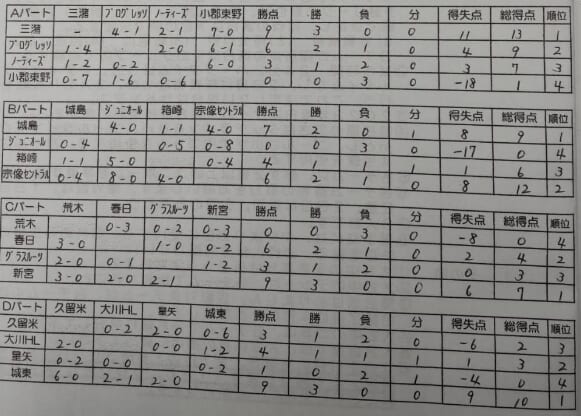 Aパート 三潴 プログレッソ ノーティーズ 小郡東野 勝点 勝 負 分 得失点 総得点 順位
三潴 - 4-1 2-1 7-0 9 3 0 0 11 13 1
プログレッソ 1-4 2-0 6-1 6 2 1 0 4 9 2
ノーティーズ 1-2 0-2 6-0 3 1 2 0 3 7 3
小郡東野 0-7 1-6 0-6 0 0 3 0 -18 1 4
Bパート 城島 ジュニオール 箱崎 宗像セントラル 勝点 勝 負 分 得失点 総得点 順位
城島 4-0 1-1 4-0 7 2 0 1 8 9 1
ジュニオール 0-4 0-5 0-8 0 0 3 0 -17 0 4
箱崎 1-1 5-0 0-4 4 1 1 1 1 6 3
宗像セントラル 0-4 8-0 4-0 6 2 1 0 8 12 2
Cパート 荒木 春日 グラスルーツ 新宮 勝点 勝 負 分 得失点 総得点 順位
荒木 0-3 0-2 0-3 0 0 3 0 -8 0 4
春日 3-0 1-0 0-2 6 2 1 0 2 4 2
グラスルーツ 2-0 0-1 1-2 3 1 2 0 0 3 3
新宮 3-0 2-0 2-1 9 3 0 0 6 7 1
Dパート 久留米 大川HL 星矢 城東 勝点 勝 負 分 得失点 総得点 順位
久留米 0-2 2-0 0-6 3 1 2 0 -6 2 3
大川HL 2-0 0-0 1-2 4 1 1 1 1 3 2
星矢 0-2 0-0 0-2 1 0 2 1 -4 0 4
城東 6-0 2-1 2-0 9 3 0 0 9 10 1